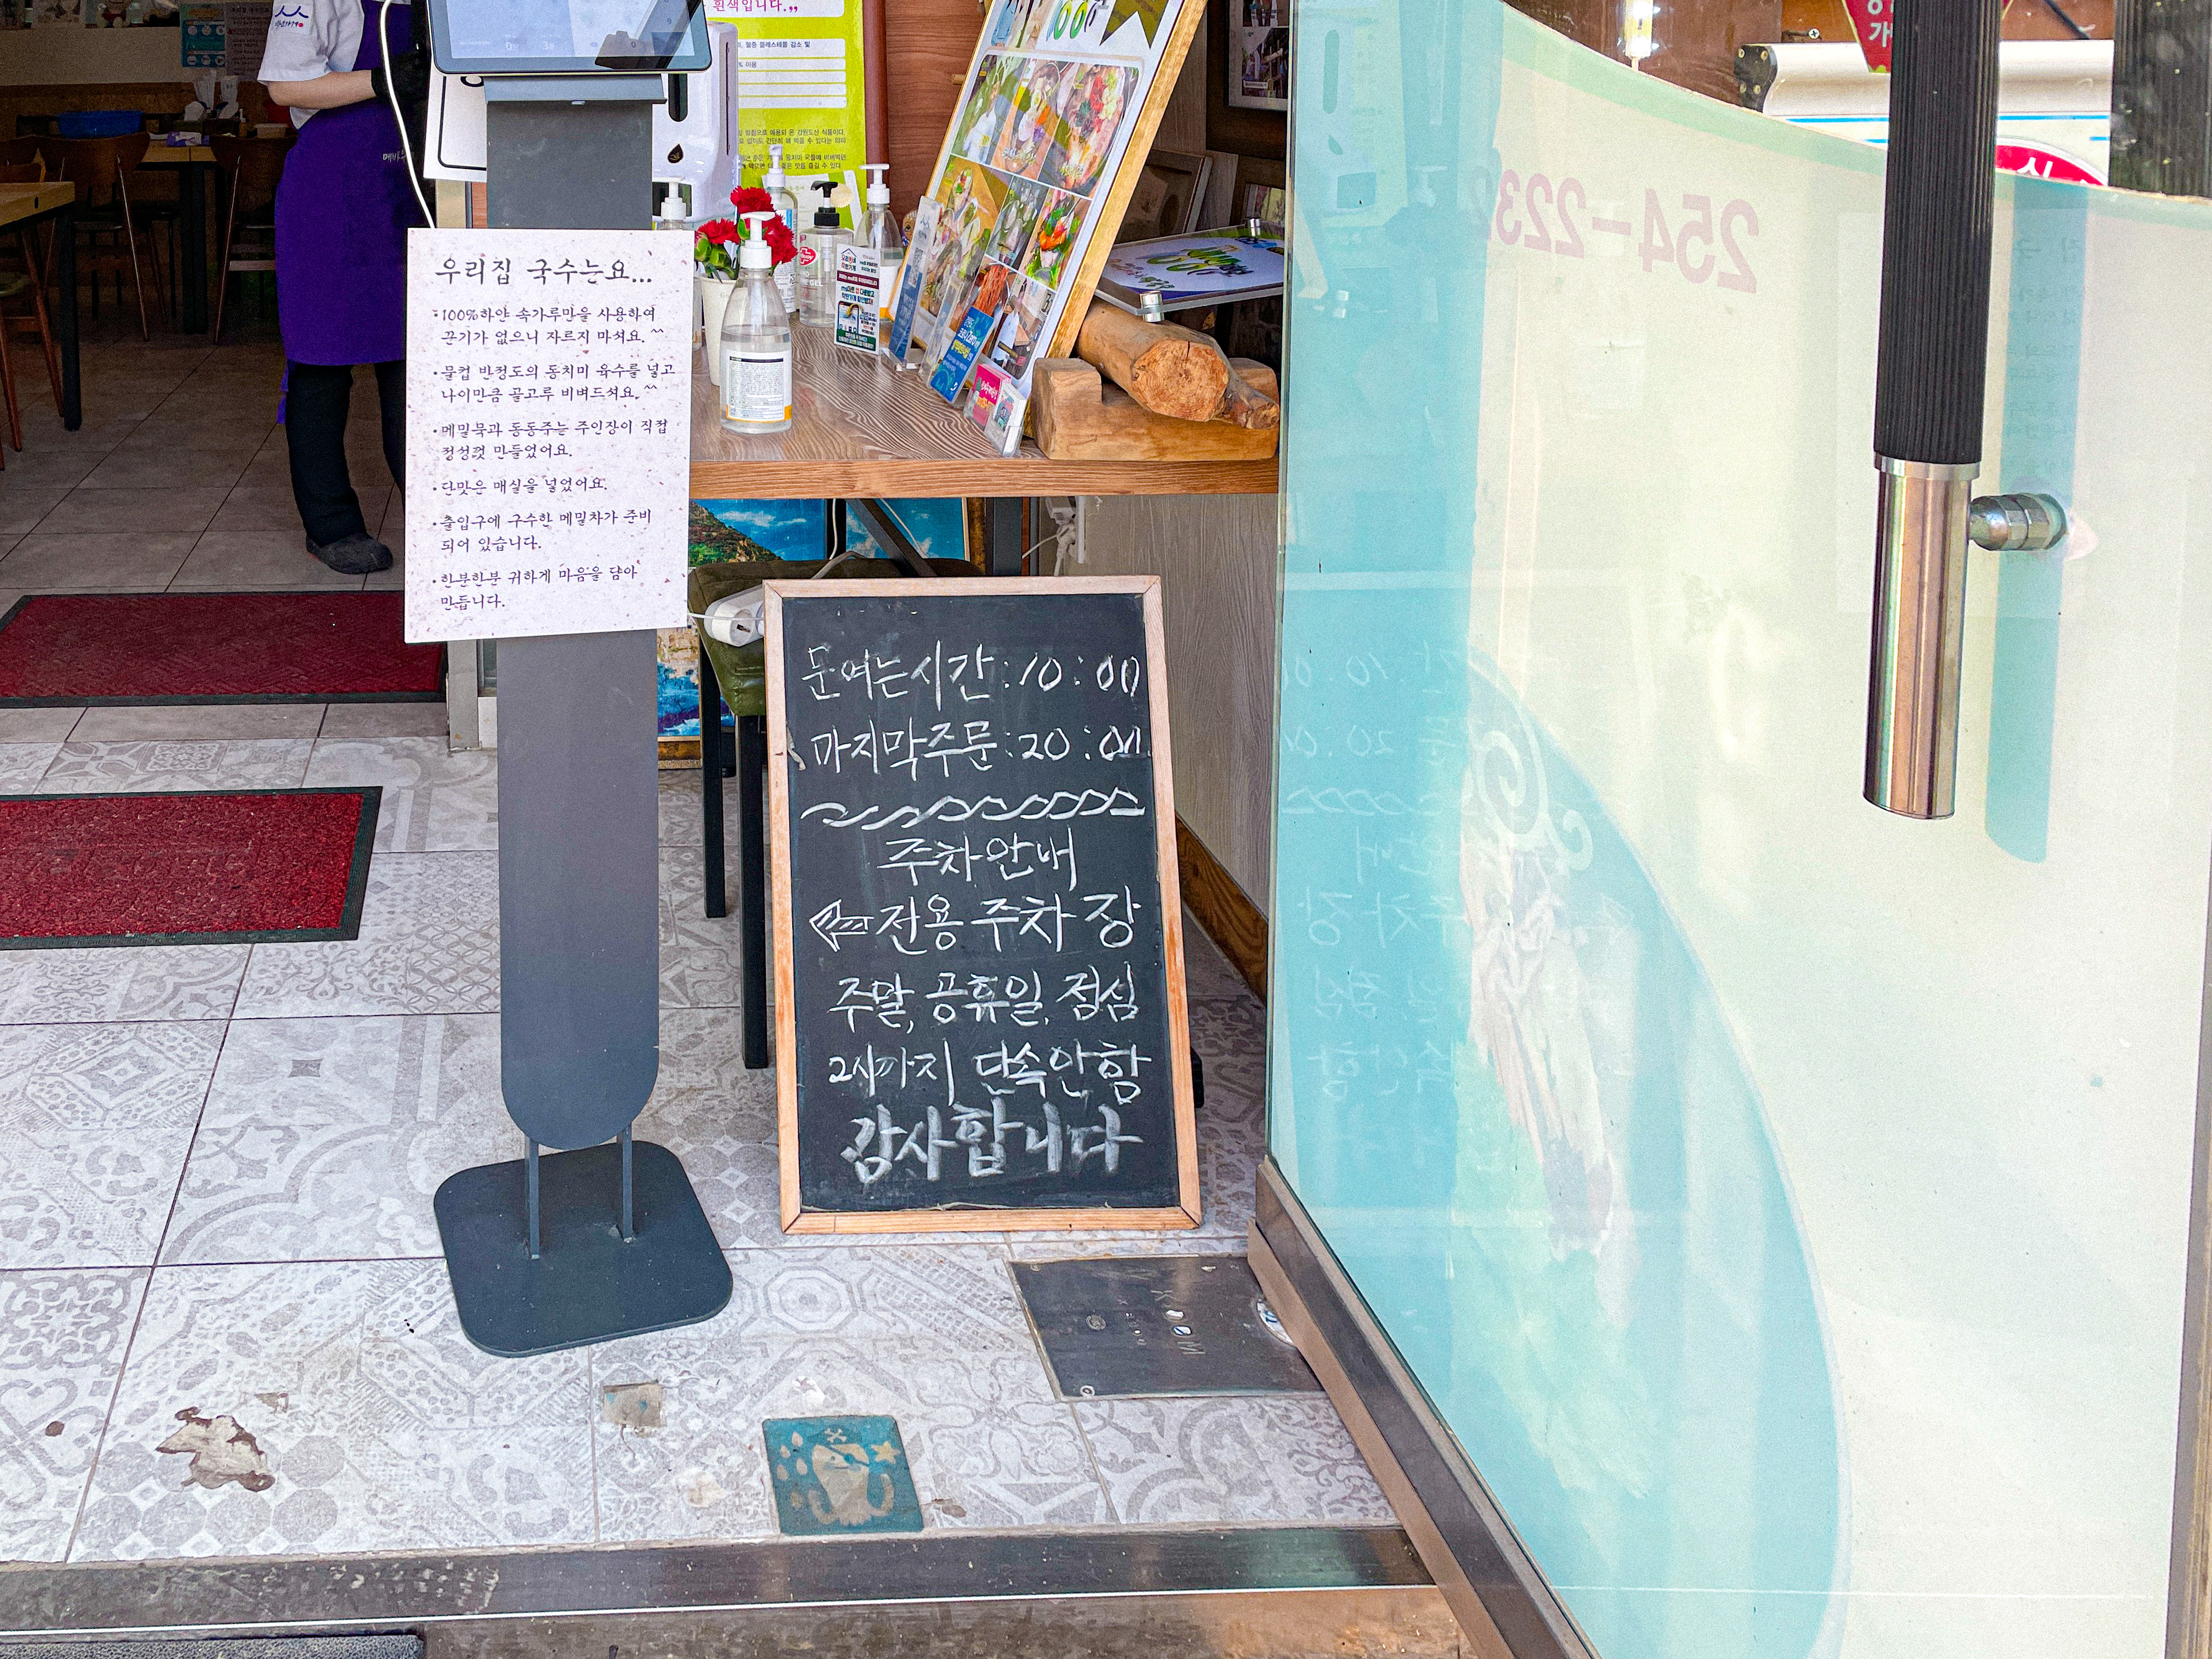 흰색입니다.„
254-223
우리집 국수는요...
·100%하얀 속가루만을 사용하여
끈기가 없으니 자르지 마셔요.^^
·물컵 반정도의 동치미 육수를 넣고
나이만큼 골고루 비벼드셔요.^^
·메밀묵과 동동주는 주인장이 직접
정성껏 만들었어요.
·단맛은 매실을 넣었어요.
·출입구에 구수한 메밀차가 준비
되어 있습니다.
·한분한분 귀하게 마음을 담아
만듭니다.
문여는시간:10:00
마지막주문:20:00
주차안내
전용주차장
주말, 공휴일, 점심
2시까지 단속안함
감사합니다